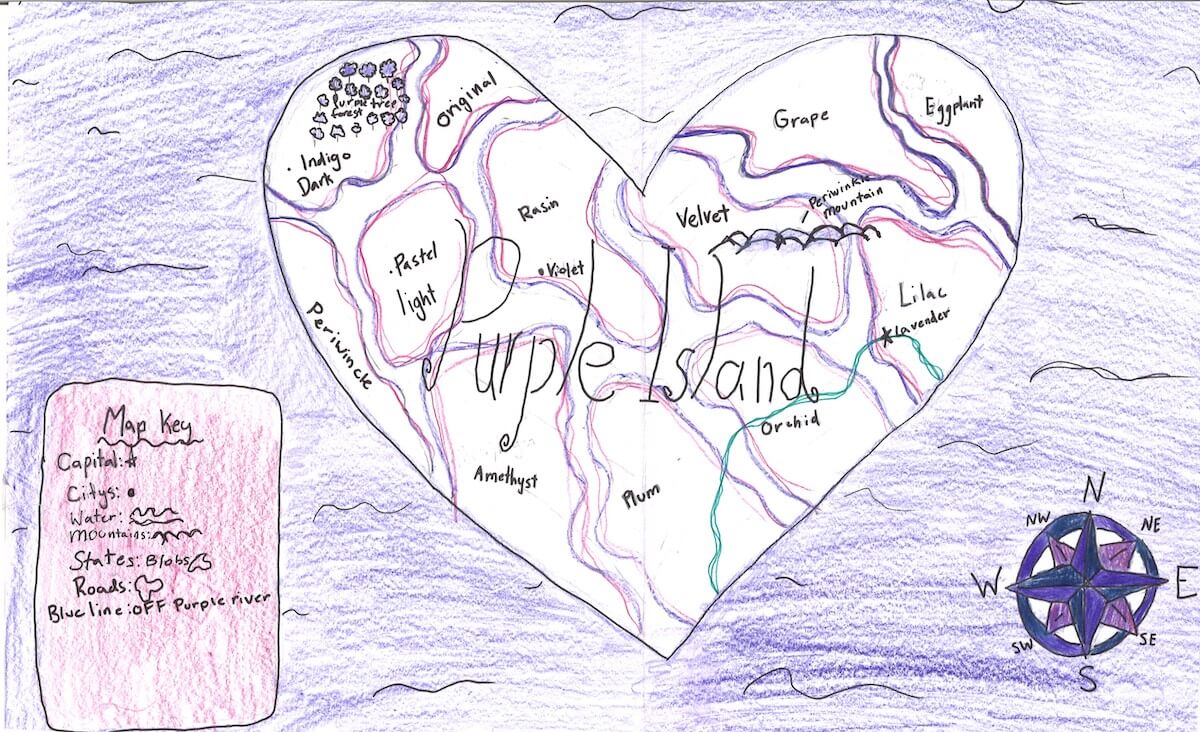 Purple tree
forest
Original
Indigo
Dark
Grape
Eggplant
Periwinkle
mountain
Velvet
Rasin
Violet
Pastel
light
Periwinckle
Lilac
lavender
Purple Island
Orchid
Amethyst
Plum
Map Key
Capital:
Citys:
Water:
Mountains:
States: Blobs
Roads:
Blue line: OFF Purple river
N
NW
NE
W
E
SW
SE
S